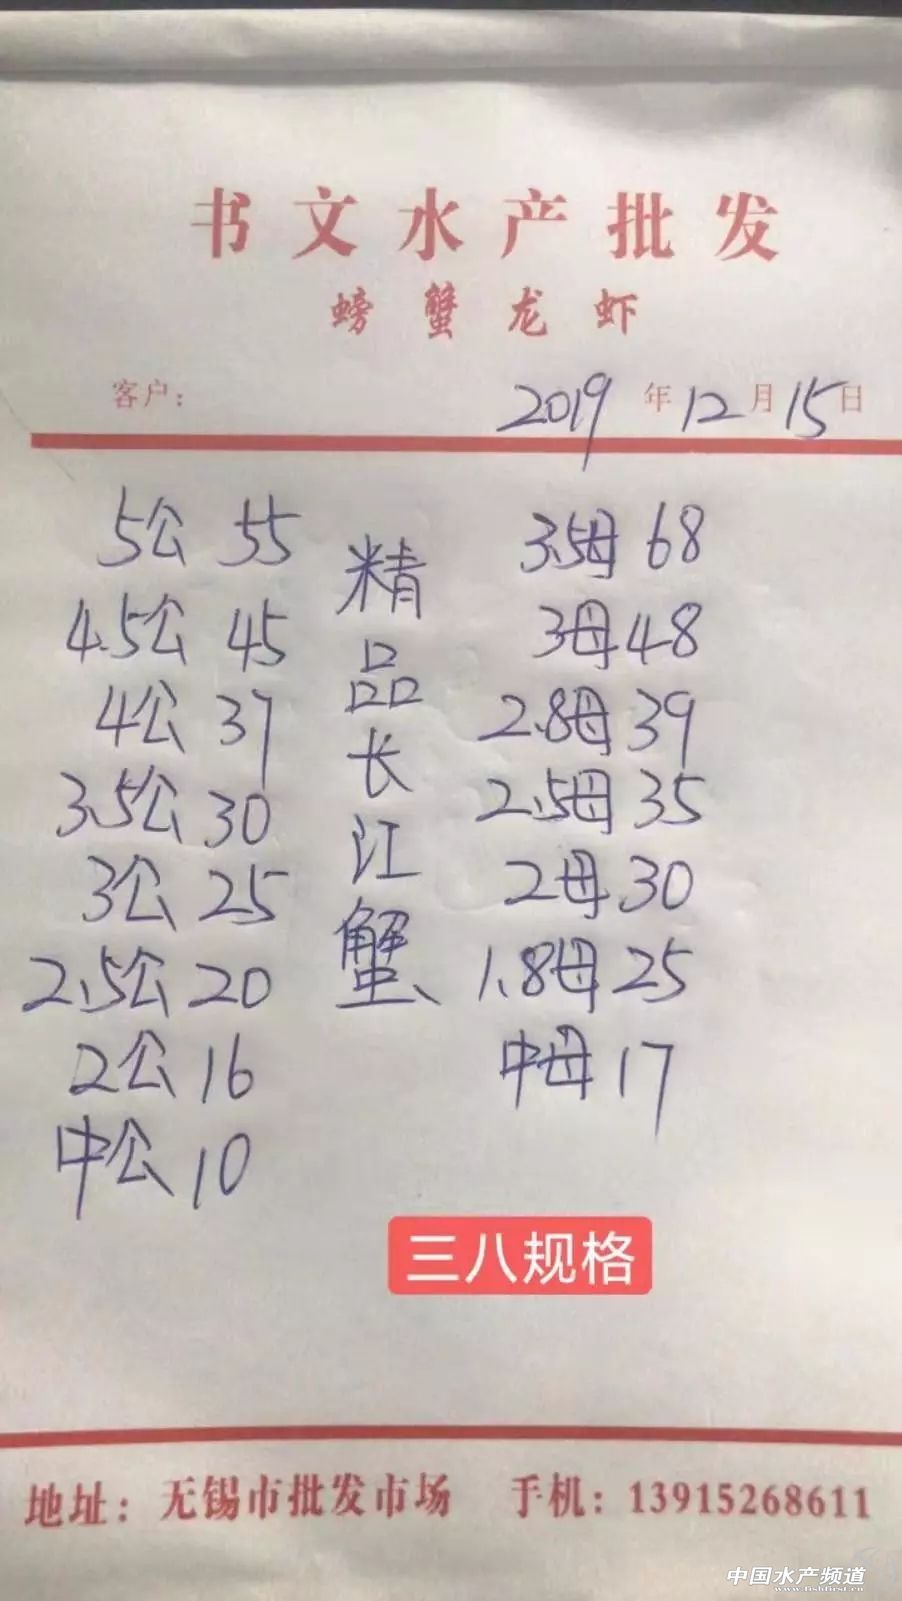 书文水产批发
螃蟹龙虾
客户：
2019年12月15日
5公 55
4.5公 45
4公 37
3.5公 30
3公 25
2.5公 20
2公 16
中公 10
精品长江蟹
3.5母 68
3母 48
2.8母 39
2.5母 35
2母 30
1.8母 25
中母 17
三八规格
地址：无锡市批发市场 手机：13915268611
中国水产频道
www.fishfirst.cn